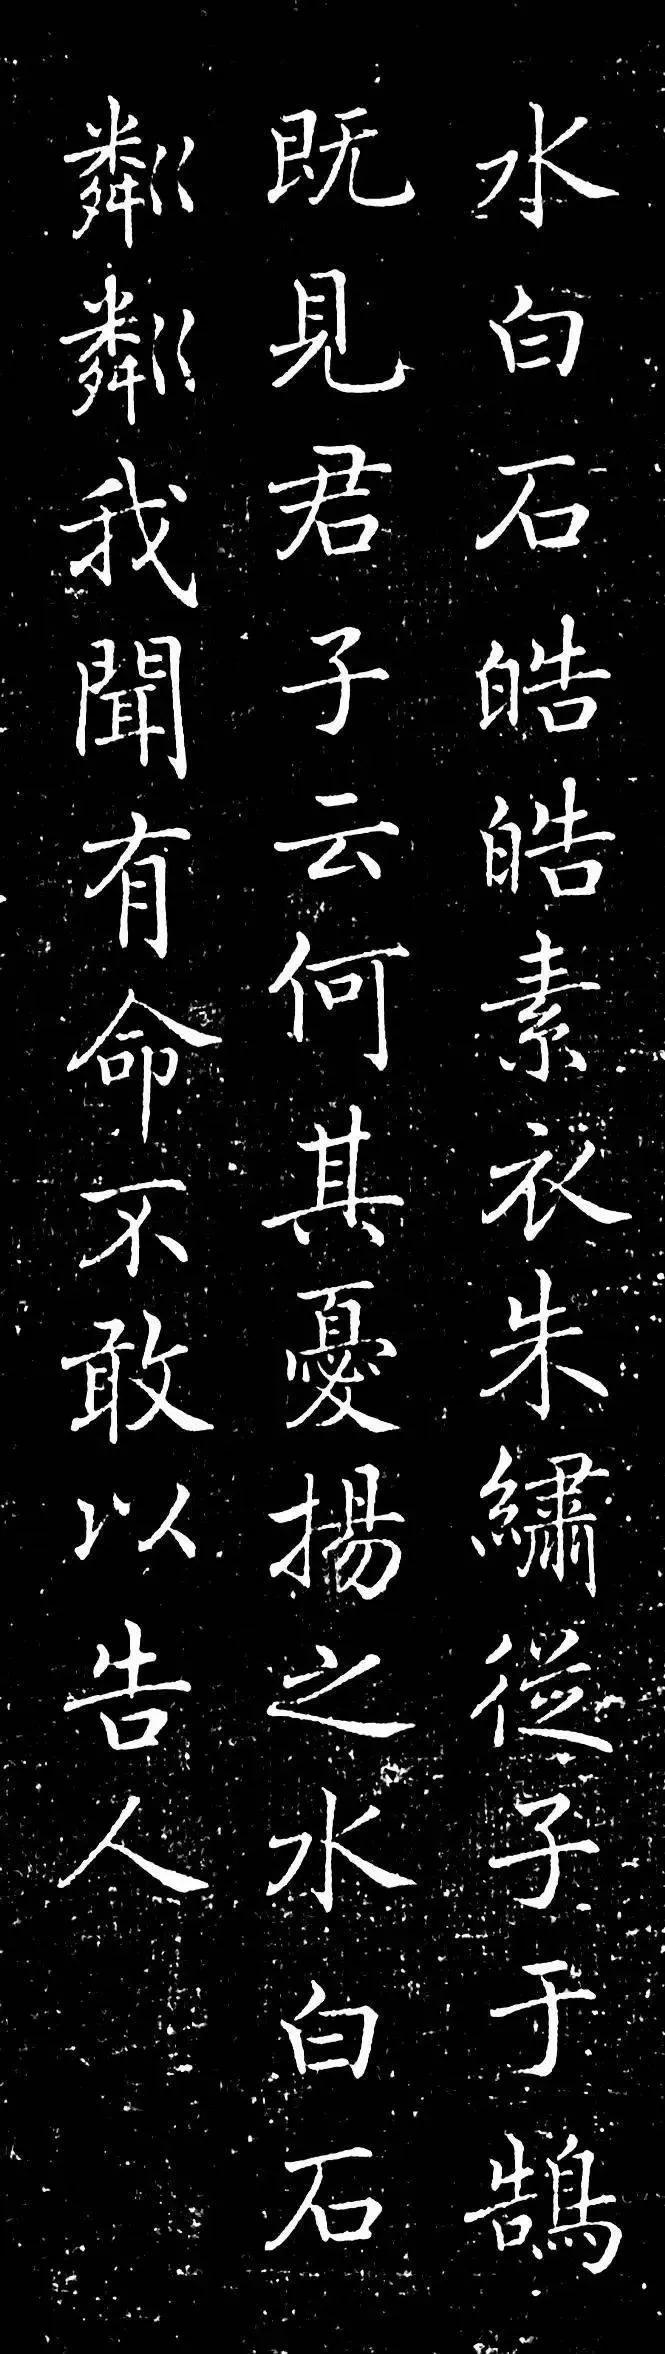 水白石皓皓素衣朱繡從子于鵠
既見君子云何其憂揚之水白石
粼粼我聞有命不敢以告人